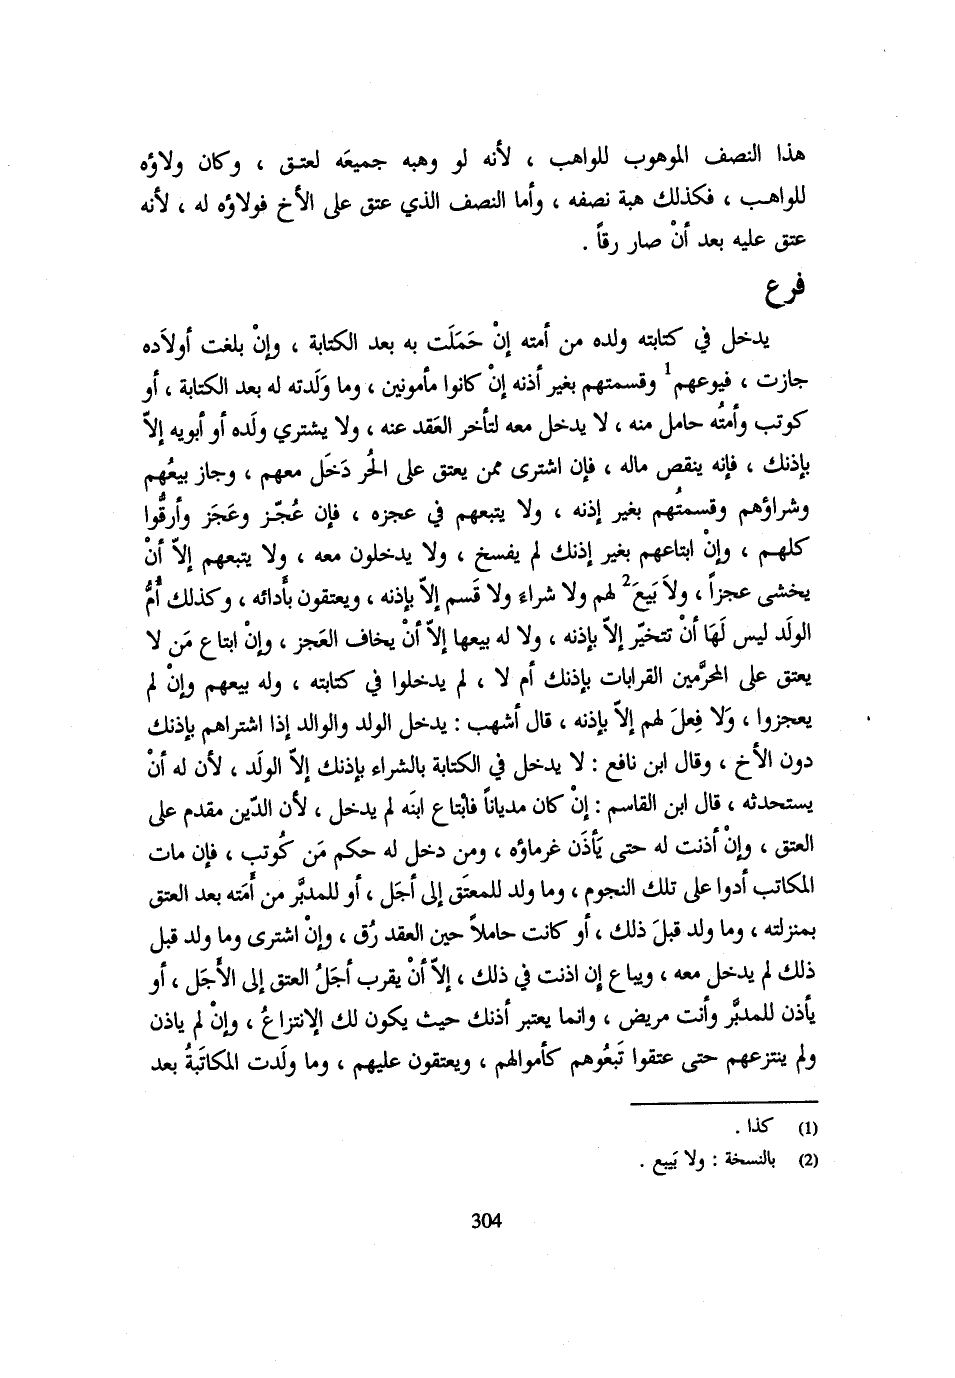 هذا النصف الموهوب للواهب ، لأنه لو وهبه جميعَه لعتـق ، وكان ولاؤه
للواهـب ، فكذلك هبة نصفه ، وأما النصف الذي عتق على الأخ فولاؤه له ، لأنه
عتق عليه بعد أنْ صار رقاً .
فرع
يدخل في كتابته ولده من أمته إنْ حَمَلَت به بعد الكتابة ، وإنْ بلغت أولاَده
جازت ، فيوعهم1 وقسمتهم بغير أذنه إنْ كانوا مأمونين ، وما وَلَدته له بعد الكتابة ، أو
كوتب وأمتُه حامل منه ، لا يدخل معه لتأخر العَقد عنه ، ولا يشتري ولَده أو أبويه إلاّ
بإذنك ، فإنه ينقص ماله ، فإن اشترى ممن يعتق على الحُر دَخَل معهم ، وجاز بيعُهم
وشراؤهم وقسمتُهم بغير إذنه ، ولا يتبعهم في عجزه ، فإن عُجّـز وعَجَز وأرقُّوا
كلهـم ، وإنْ ابتاعهم بغير إذنك لم يفسخ ، ولا يدخلون معه ، ولا يتبعهم إلاّ أنْ
يخشى عجزاً ، ولاَ بَيعَ2 لهم ولا شراءَ ولا قَسم إلاّ بإذنه ، ويعتقون بأَدائه ، وكذلك أُمُّ
الولَد ليس لَهَا أنْ تتخيّر إلاّ بإذنه ، ولا له بيعها إلاّ أنْ يخاف العَجز ، وإنْ ابتاع مَن لا
يعتق على المحرَّمين القرابات بإذنك أم لا ، لم يدخلوا في كتابته ، وله بيعهم وإنْ لم
يعجزوا ، وَلا فِعلَ لهم إلاّ بإذنه ، قال أشهب : يدخل الولد والوالد إذا اشتراهم بإذنك
دون الأخ ، وقال ابن نافع : لا يدخل في الكتابة بالشراء بإذنك إلاّ الولَد ، لأن له أنْ
يستحدثه ، قال ابن القاسم : إنْ كان مدياناً فابْتاع ابنَه لم يدخل ، لأن الدّين مقدم على
العتق ، وإنْ أذنت له حتى يَأذَن غرماؤه ، ومن دخل له حكم مَن كُوتب ، فإن مات
المكاتب أدوا على تلك النجوم ، وما ولد للمعتَق إلى أجَل ، أو للمدبَّر من أَمَته بعد العتق
بمنزلته ، وما ولد قبلَ ذلك ، أو كانت حاملاً حين العقد رُق ، وإنْ اشترى وما ولد قبل
ذلك لم يدخل معه ، ويباع إن اذنت في ذلك ، إلاّ أنْ يقرب أجَلُ العتق إلى الأَجَل ، أو
يأذن للمدبَّر وأنت مريض ، وانما يعتبر أذنك حيث يكون لك الإنتزاعُ ، وإنْ لم ياذن
ولم ينتزعهم حتى عتقوا تَبعُوهم كأموالهم ، ويعتقون عليهم ، وما ولَدت المكاتَبةُ بعد
(1) كذا .
(2) بالنسخة : ولا يَبيع .
304